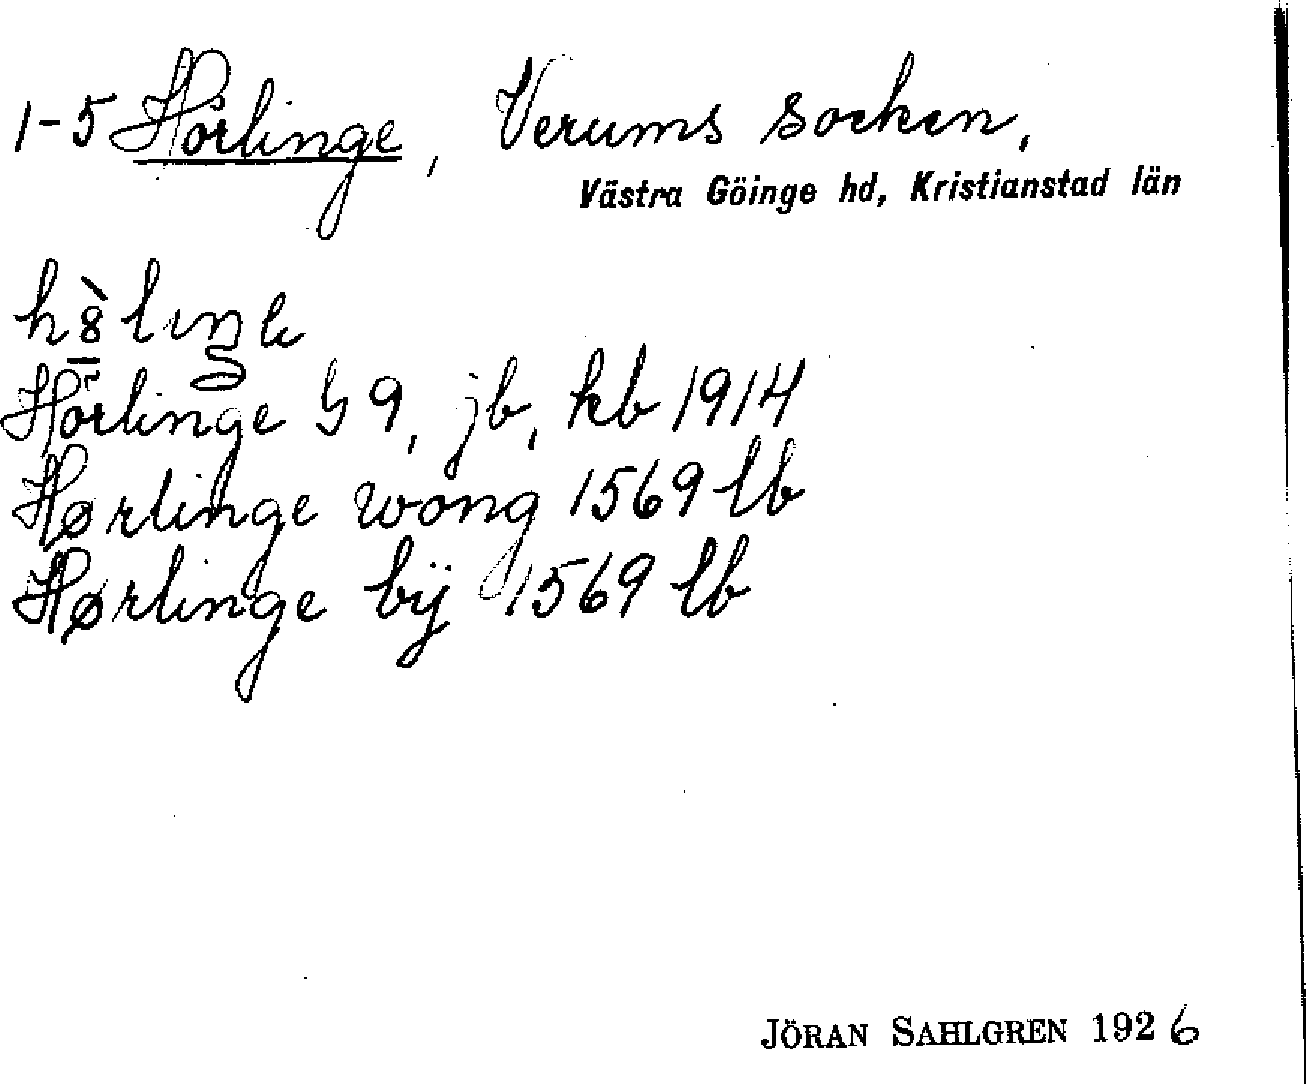 1-5 Hörlinge, Verums socken,
Västra Göinge hd, Kristianstad län
Hörlinge G 9, jb, kb 1914
Hørlinge wong 1569 lb
Hørlinge bÿ 1569 lb
JÖRAN SAHLGREN 1926